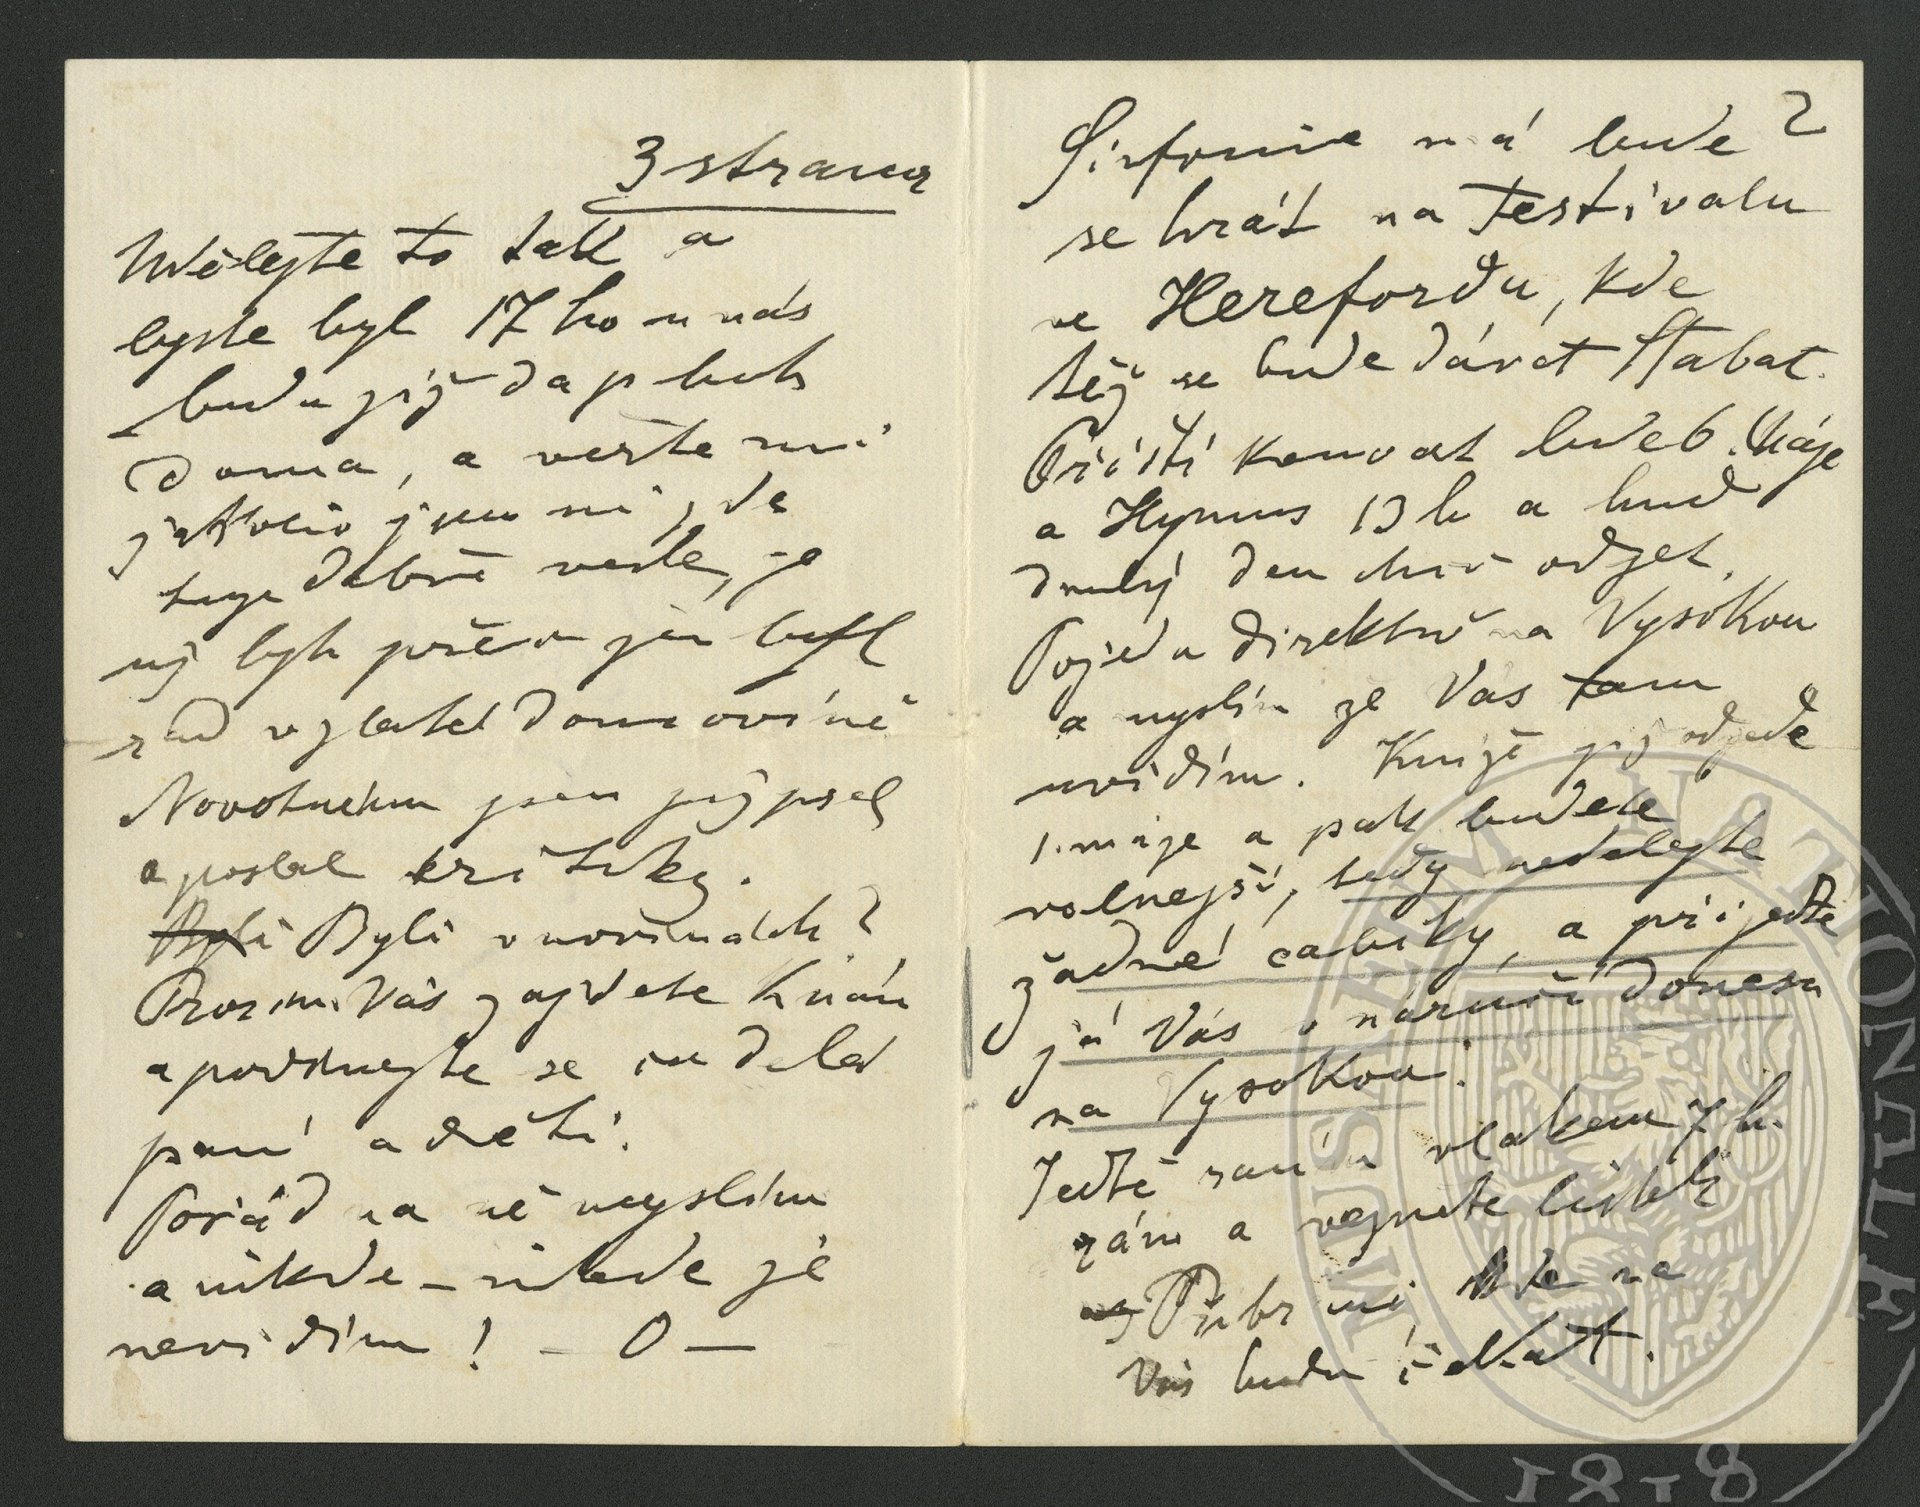 3 strana
Udělejte to tak a
byste byl 17 ho u nás
budu již da p buh
doma, a věřte mi
jakkoliv jsem mi zde
tuze dobře vede, že
už bych přece jen byl
rád v zlaté domovině
Novotnému jsem již psal
a poslal kritiky.
Byli Byli v novinách?
Prosím Vás zajdete k nám
a podívejte se co dělá
paní a děti.
Pořád na ně myslím
a nikde – nikde je
nevidím! – O –
2
Sinfonie má bude
se hrát na Festivalu
ve Herefordu, kde
též se bude dávat Stabat.
Příští koncert bude 6. Máje
a Hymnus 13 h a hned
druhý den chci odjet.
Pojedu direktně na Vysokou
a myslím že Vás tam
uvidím. Kníže již odjede
1. máje a pak budete
volnejší, tedy nedelejte
žadné cabiky, a přijeďte
já Vás v náručí donesu
na Vysokou.
Jeďte raním vlakem 7 h.
rám a vezměte lístek
až Příbrami, kde na
Vás budu čekat.
MUSAEUM ANTONII
1818